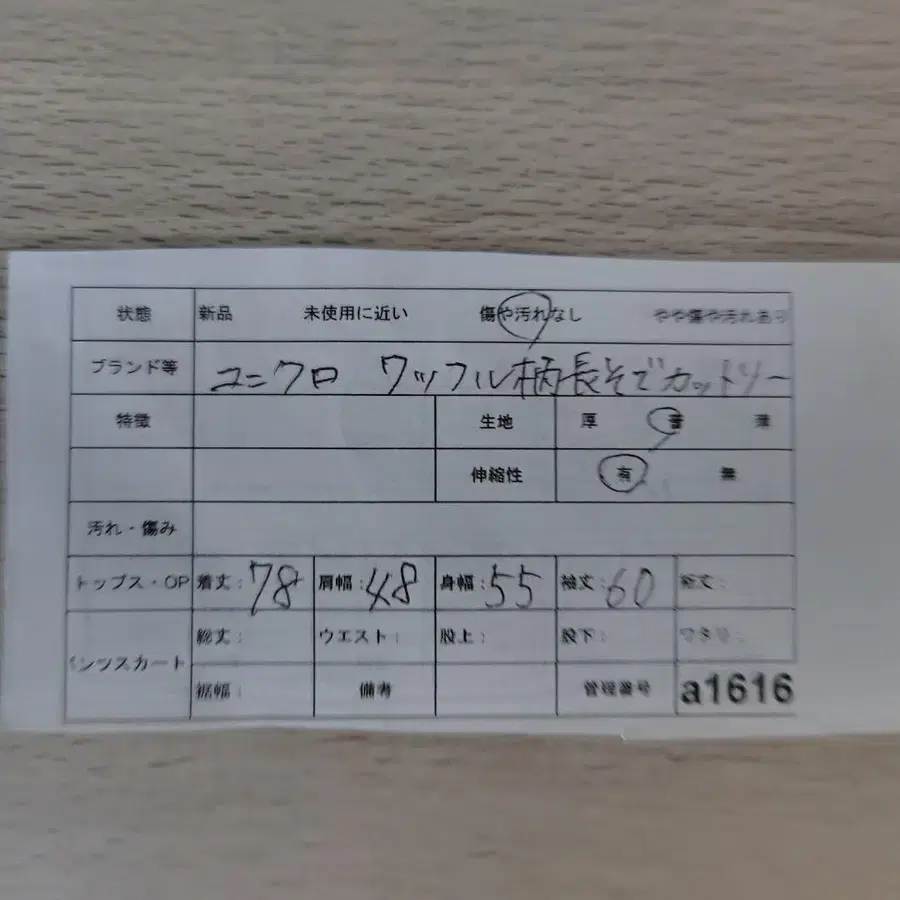 状態 新品 未使用に近い 傷や汚れなし やや傷や汚れあり
ブランド等 ユニクロ ワッフル柄長そでカットソー
特徴 生地 厚 普 薄
伸縮性 有 無
汚れ・傷み
トップス・OP 着丈:78 肩幅:48 身幅:55 袖丈:60 総丈:
ンツスカート 総丈: ウエスト: 股上: 股下: ワタリ:
裾幅: 備考 管理番号 a1616